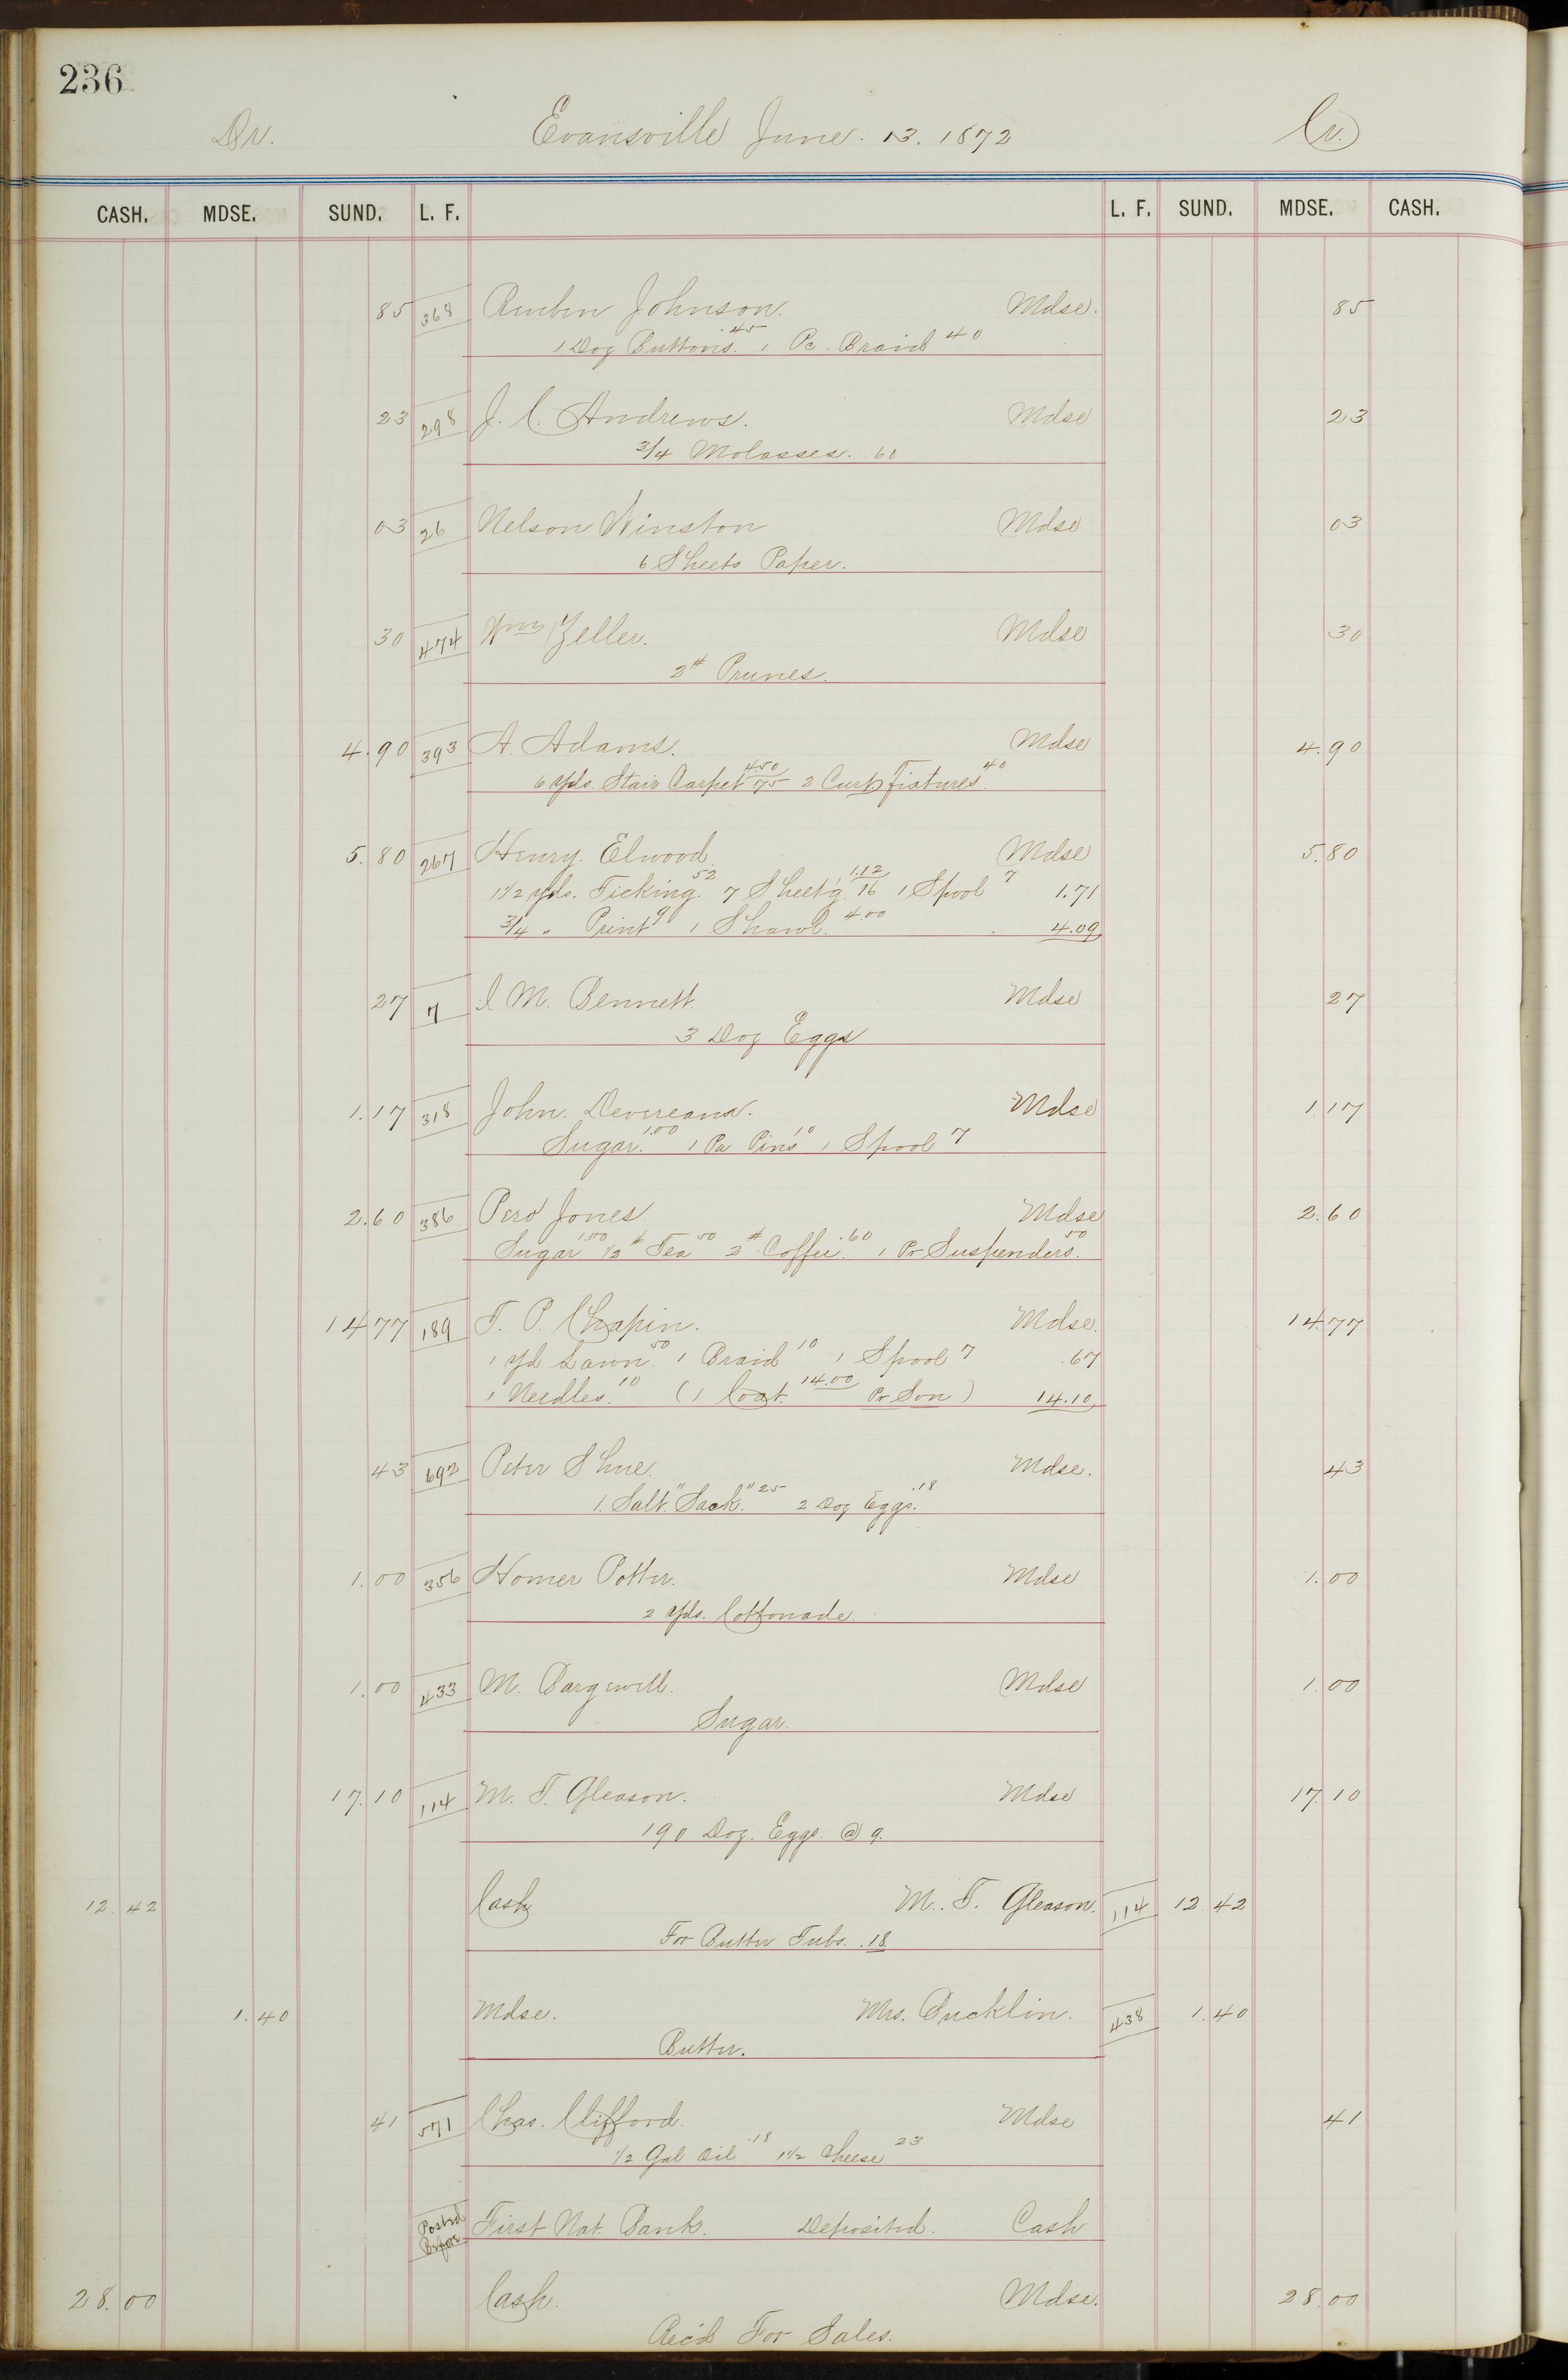 236
Dr. Evansville June. 13. 1872 Cr.
CASH. MDSE. SUND. L. F. L. F. SUND. MDSE. CASH.
85 368 Reuben Johnson. Mdse. 85
1 Doz Buttons. .45 1 Pc. Braid 40
23 298 J. C. Andrews. Mdse 23
3/4 Molasses. .60
03 26 Nelson Winston Mdse 03
6 Sheets Paper.
30 474 Wm Zeller. Mdse 30
2# Prunes.
4.90 393 A. Adams. Mdse 4.90
6 Yds. Stair Carpet 4.50 75 2 Curt Fixtures. 40
5.80 267 Henry. Elwood. Mdse 5.80
1 1/2 Yds. Ticking. 52 7 Sheet'g. 1.12 16 1 Spool 7 1.71
3/4 " Print 9 1 Shawl. 4.00 4.09
27 7 I M. Bennett. Mdse 27
3 Doz Eggs
1.17 318 John. Devereaux. Mdse 1.17
Sugar. 1.00 1 Pa Pins 10 1 Spool 7
2.60 386 Perd Jones Mdse 2.60
Sugar. 1.00 1/2# Tea 50 2# Coffee. .60 1 Pr Suspenders. 50
14.77 189 T. P. Chapin. Mdse. 14.77
1 Yd Lawn. 50 1 Braid 10 1 Spool 7 .67
1 Needles. 10 (1 Coat. 14.00 Pr Son) 14.10
43 692 Peter Shue. Mdse. 43
1. Salt. "Sack." 25 2 Doz Eggs. .18
1.00 356 Homer Potter. Mdse 1.00
2 Yds. Cottonade.
1.00 433 M. Bargewell. Mdse 1.00
Sugar.
17.10 114 M. T. Gleason. Mdse 17.10
190 Doz. Eggs. @ 9.
12.42 Cash M. T. Gleason. 114 12.42
For Butter Tubs. .18
1.40 Mdse. Mrs. Bucklin. 438 1.40
Butter.
41 571 Chas. Clifford. Mdse 41
1/2 Gal Oil .18 1 1/2 Cheese 23
Posted Before First Nat. Bank. Deposited. Cash
28.00 Cash. Mdse. 28.00
Rec'd For Sales.